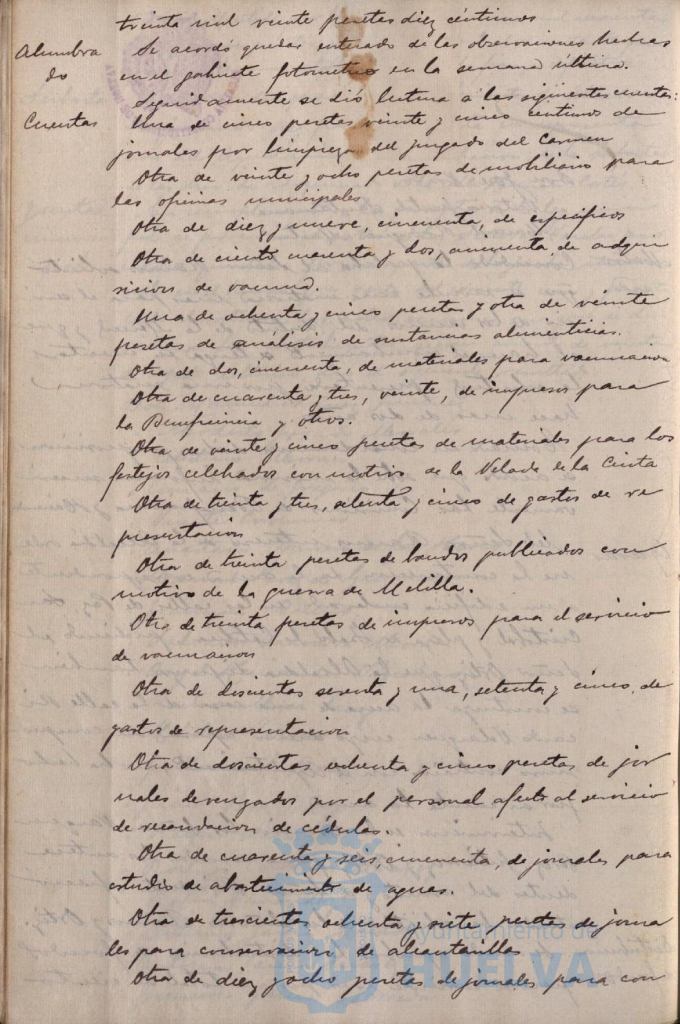 treinta mil veinte pesetas diez céntimos
Alumbra
do
Se acordó quedar enterado de las observaciones hechas
en el gabinete fotometrico en la semana última.
Cuentas
Seguidamente se dió lectura a las siguientes cuentas:
Una de cinco pesetas veinte y cinco centimos de
jornales por limpieza del juzgado del Carmen
Otra de veinte y ocho pesetas de mobiliario para
las oficinas municipales
Otra de diez y nueve, cincuenta, de especificos
Otra de ciento cuarenta y dos, cincuenta, de adqui
sicion de vacuna.
Una de ochenta y cinco pesetas y otra de veinte
pesetas de análisis de sustancias alimenticias.
Otra de dos, cincuenta, de materiales para vacunacion
Otra de cuarenta y tres, veinte, de impresos para
la Beneficencia y otros.
Otra de veinte y cinco pesetas de materiales para los
festejos celebrados con motivo de la Velada de la Cinta
Otra de treinta y tres, setenta y cinco de gastos de re
presentacion
Otra de treinta pesetas de bandos publicados con
motivo de la guerra de Melilla.
Otra de treinta pesetas de impresos para el servicio
de vacunacion
Otra de doscientas sesenta y una, setenta y cinco, de
gastos de representacion
Otra de doscientas ochenta y cinco pesetas de jor
nales devengados por el personal afecto al servicio
de recaudacion de cédulas.
Otra de cuarenta y seis, cincuenta, de jornales para
estudio de abastecimiento de aguas.
Otra de trescientas ochenta y siete pesetas de jorna
les para conservacion de alcantarillas
Otra de diez y ocho pesetas de jornales para con
Ayuntamiento de
HUELVA